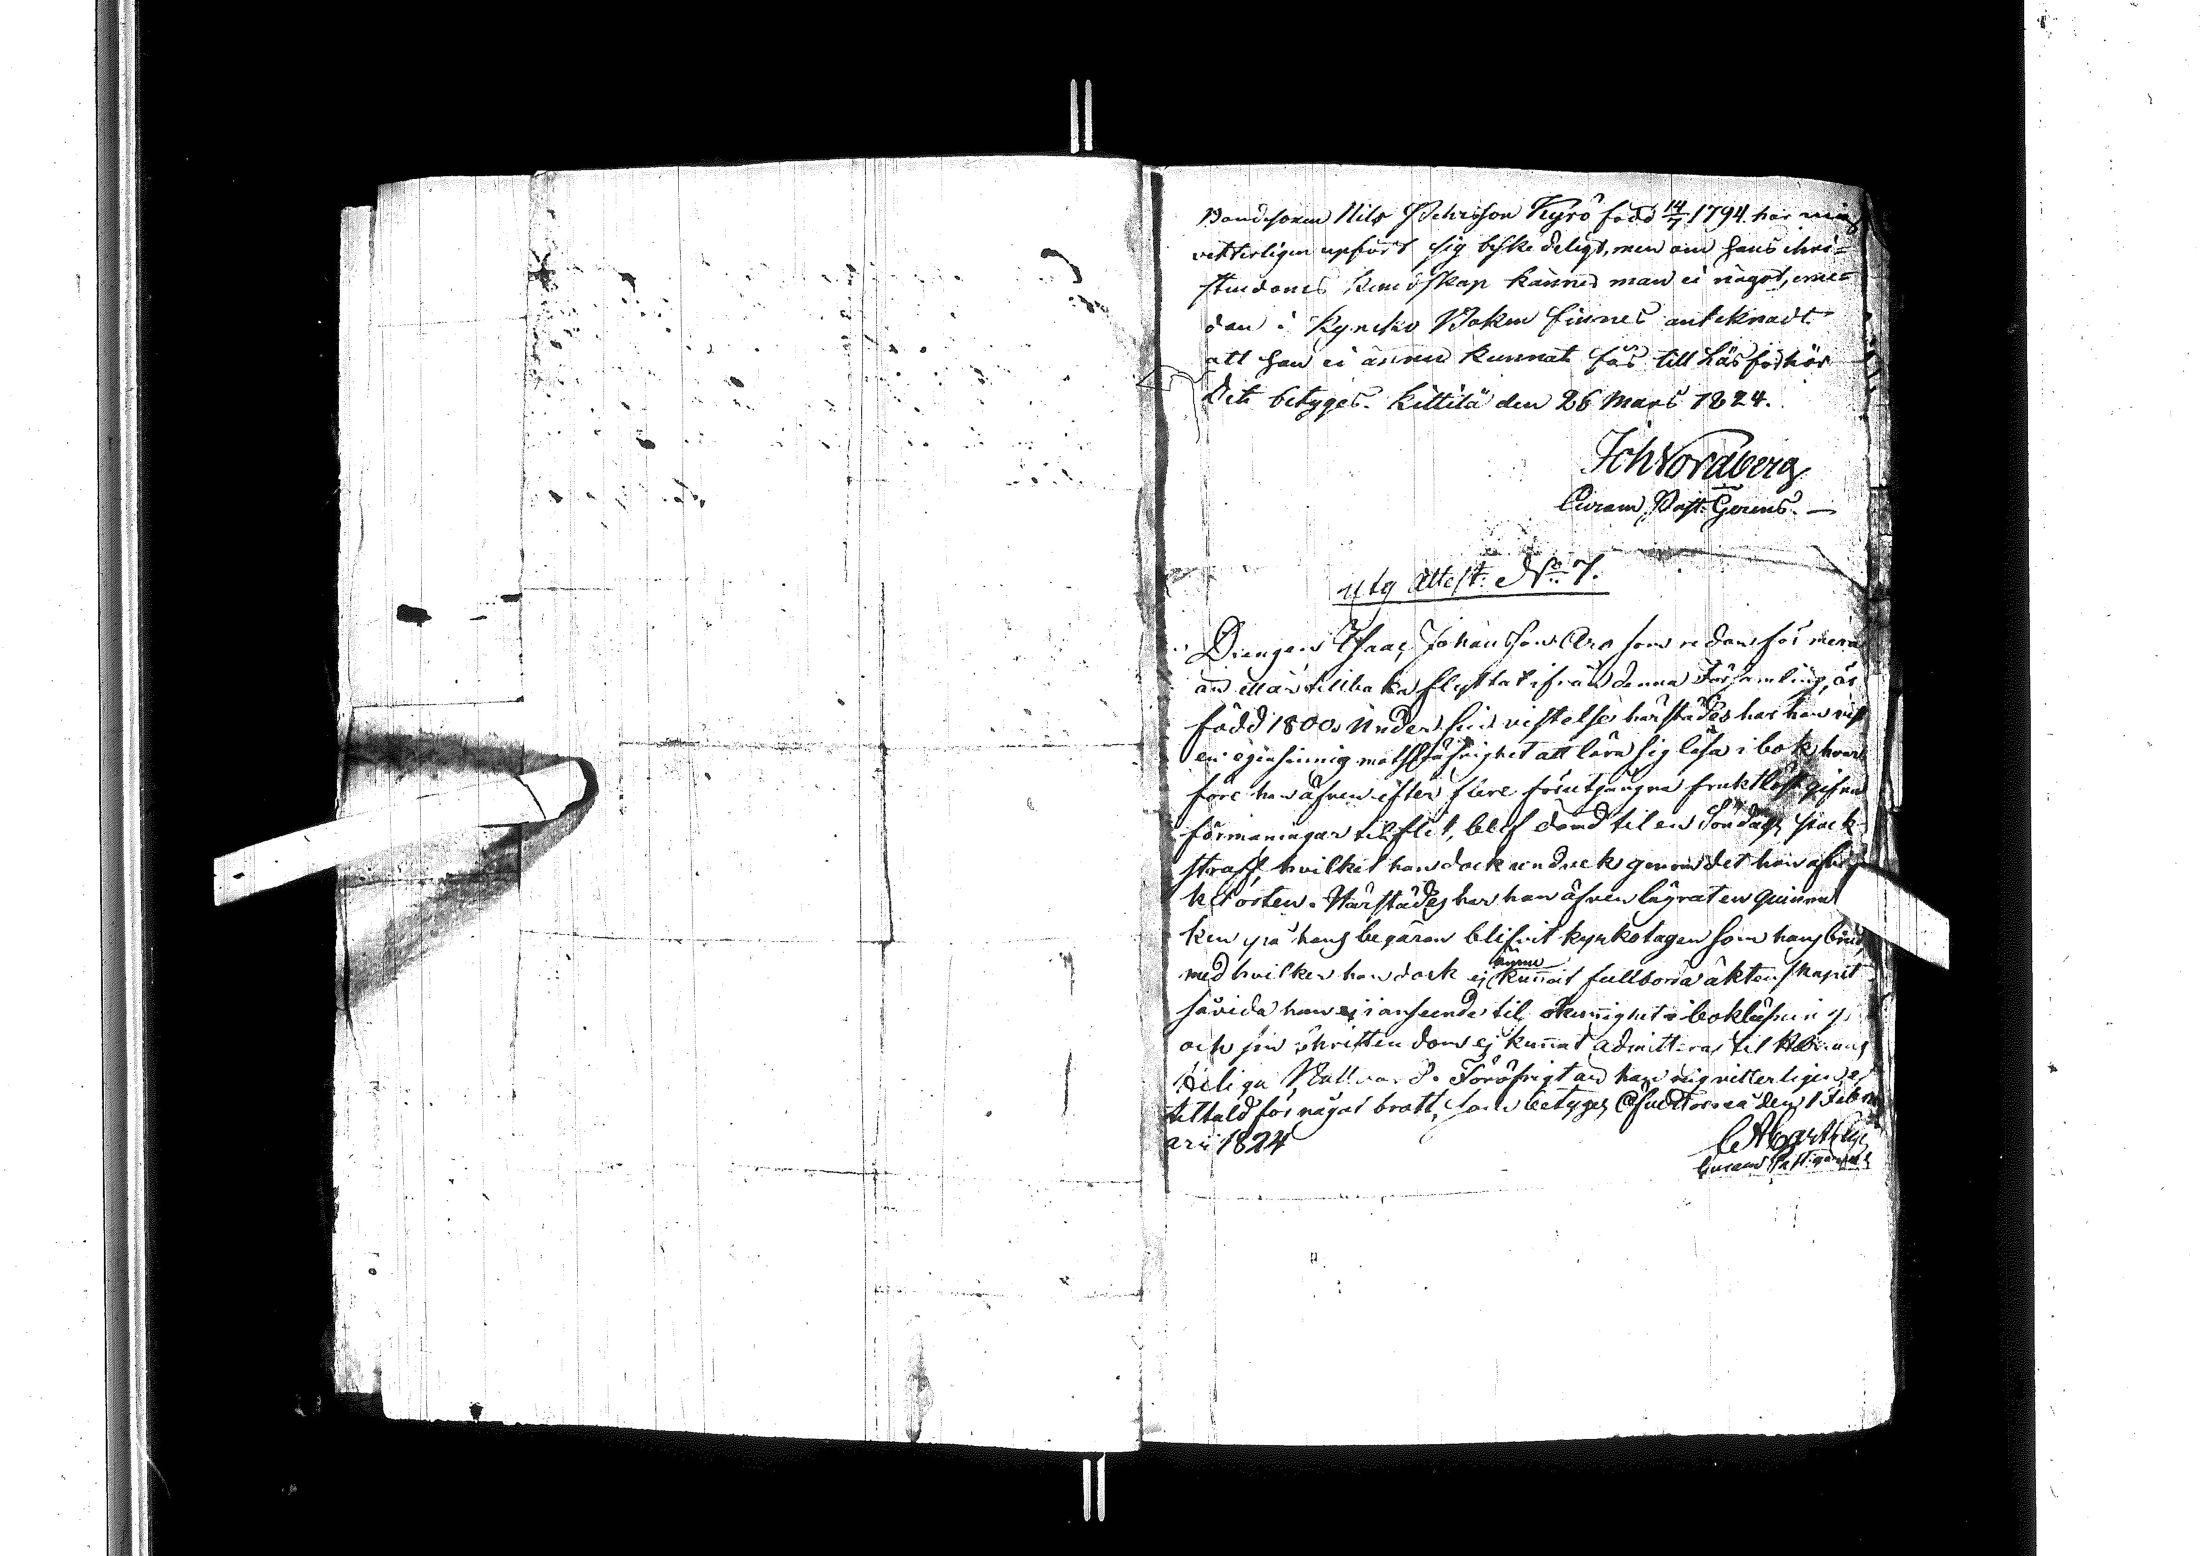 Bondesonen Nils Pehrsson Kyrö född 14/7 1794 har mig
vetterligen upfört sig beskedeligt, men om hans chri-
stendoms kundskap känner man ei något, eme-
dan i Kyrcko Boken finnes antecknadt
att han ei ännu kunnat fås till Läsförhör
Det betygas. Kittilä den 26 Mars 1824.
Joh Nordberg
Curam Past. Gerens.
Utg Attest. No 7.
Drengen Isaac Johansson Aro som redan för mera
än ett år tillbaka flyttat ifrån denna Församling, är
född 1800. Under sin vistelse härstädes har han vist
en egensinnig motsträfvighet att lära sig läsa i bok hvar
före han äfven efter flere förutgångna fruktlöst gifna
förmaningar til flit, blef dömd til en Söndags stock
straff, hvilket han dock undvek genom det han
orten. Härstädes har han äfven lägrat en quinna
ken på hans begäran blifvit kyrkotagen som hans brud,
med hvilken han dock ej ännu kunnat fullborda äktenskapet
såvida han ej i anseende til okunnighet i bokläsning
och sin christendom ej kunnat admitteras til Herrans
Heliga Nattvard. Föröfrigt är han mig vetterligen ej
tilltald för något brott, som betygas den 1 Febru
arii 1824
Curam Past. gerens